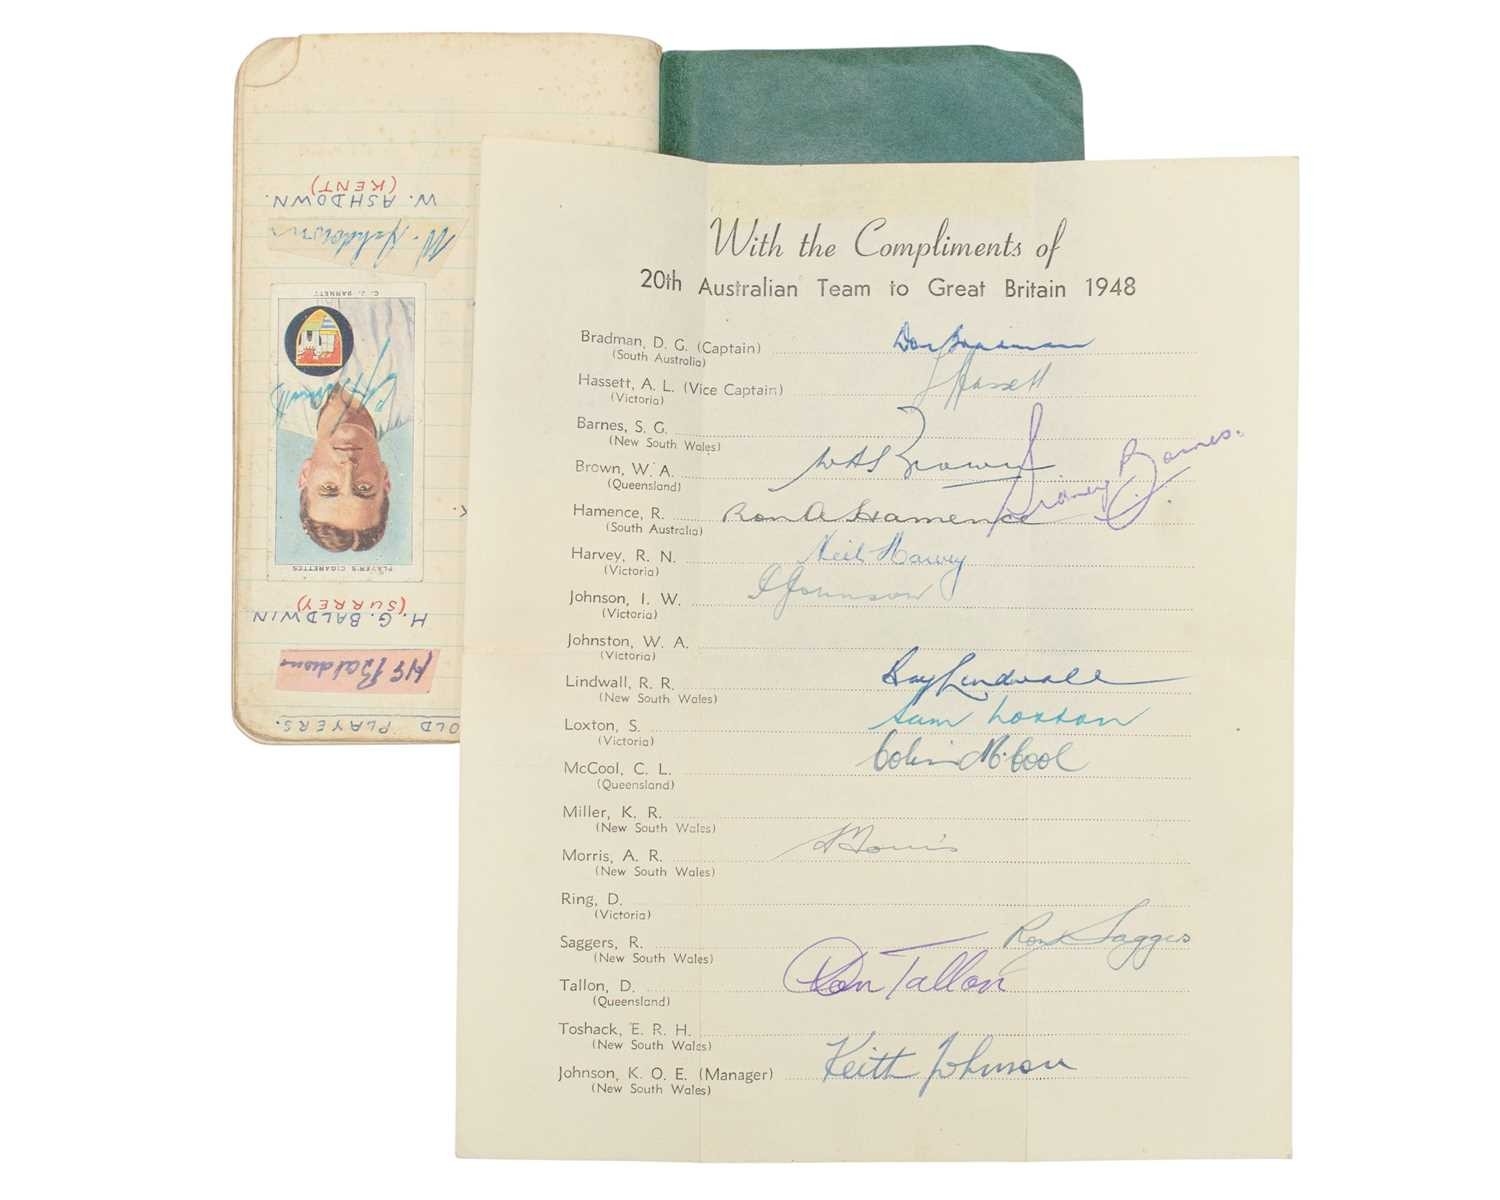 With the Compliments of
20th Australian Team to Great Britain 1948
Bradman, D. G. (Captain) Don Bradman
(South Australia)
Hassett, A. L. (Vice Captain) L Hassett
(Victoria)
Barnes, S. G. Sidney G. Barnes.
(New South Wales)
Brown, W. A. W A Brown
(Queensland)
Hamence, R. Ron A Hamence
(South Australia)
Harvey, R. N. Neil Harvey
(Victoria)
Johnson, I. W. I Johnson
(Victoria)
Johnston, W. A.
(Victoria)
Lindwall, R. R. Ray Lindwall
(New South Wales)
Loxton, S. Sam Loxton
(Victoria)
McCool, C. L. Colin McCool
(Queensland)
Miller, K. R.
(New South Wales)
Morris, A. R. A Morris
(New South Wales)
Ring, D.
(Victoria)
Saggers, R. Ron Saggers
(New South Wales)
Tallon, D. Don Tallon
(Queensland)
Toshack, E. R. H.
(New South Wales)
Johnson, K. O. E. (Manager) Keith Johnson
(New South Wales)
OLD PLAYERS.
H G Baldwin
H. G. BALDWIN
(SURREY)
PLAYER'S CIGARETTES
C. J. BARNETT
W. Ashdown
W. ASHDOWN.
(KENT)